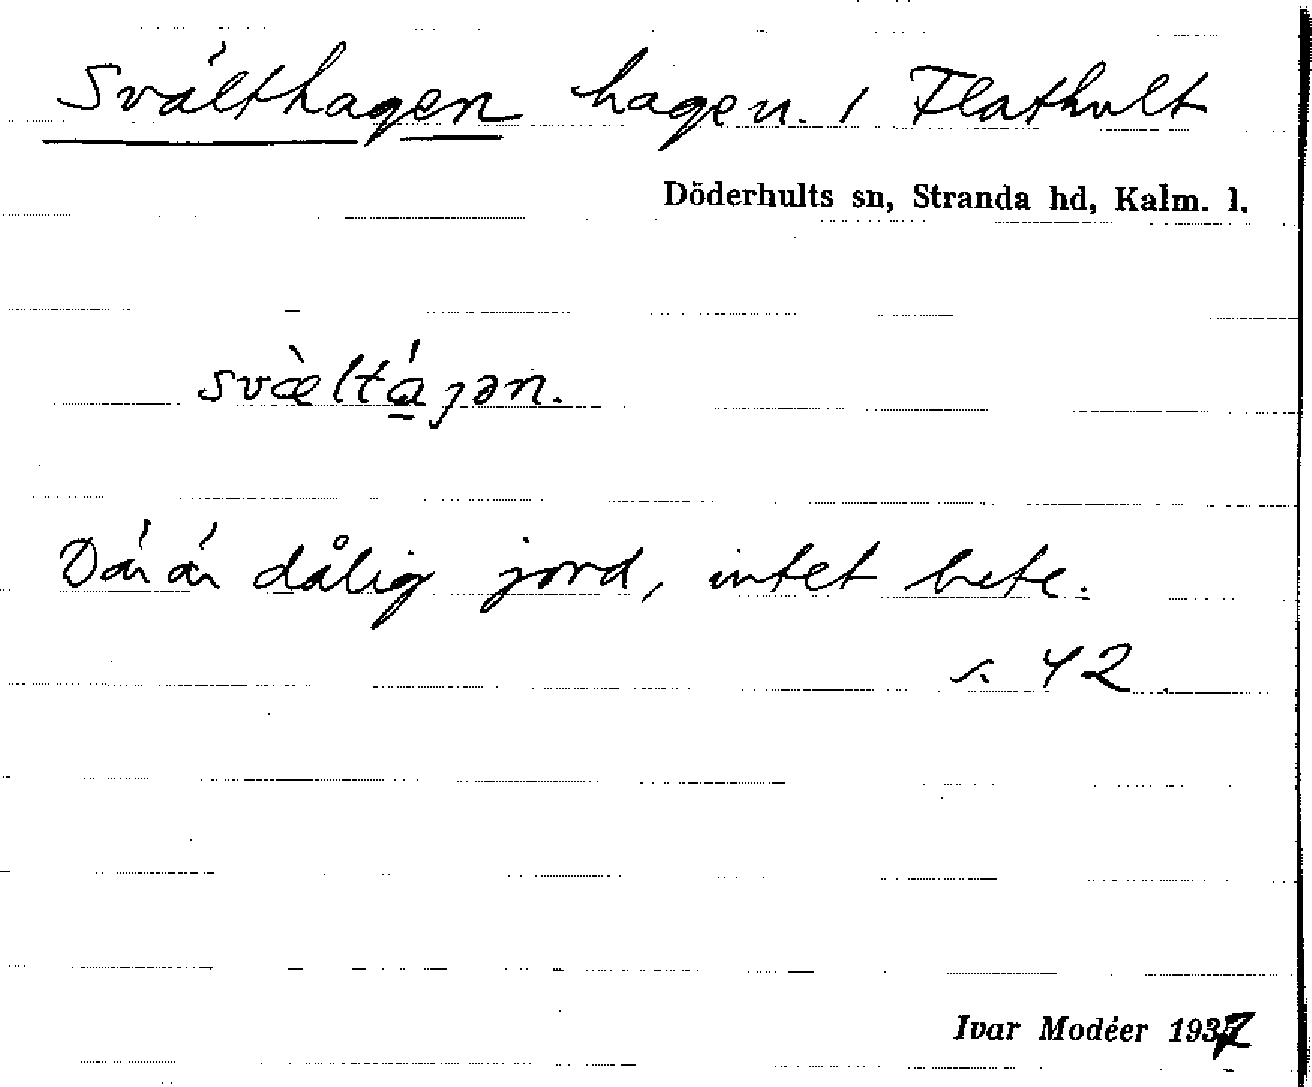 Svälthagen hagen. / Flathult
Döderhults sn, Stranda hd, Kalm. l.
svæ̀ltáɡən.
Där är dålig jord, intet bete.
s. 42.
Ivar Modéer 1937